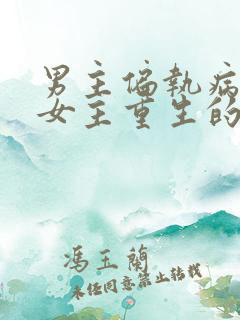 男主偏执病
女主重生的
冯玉兰
未经同意禁止转载